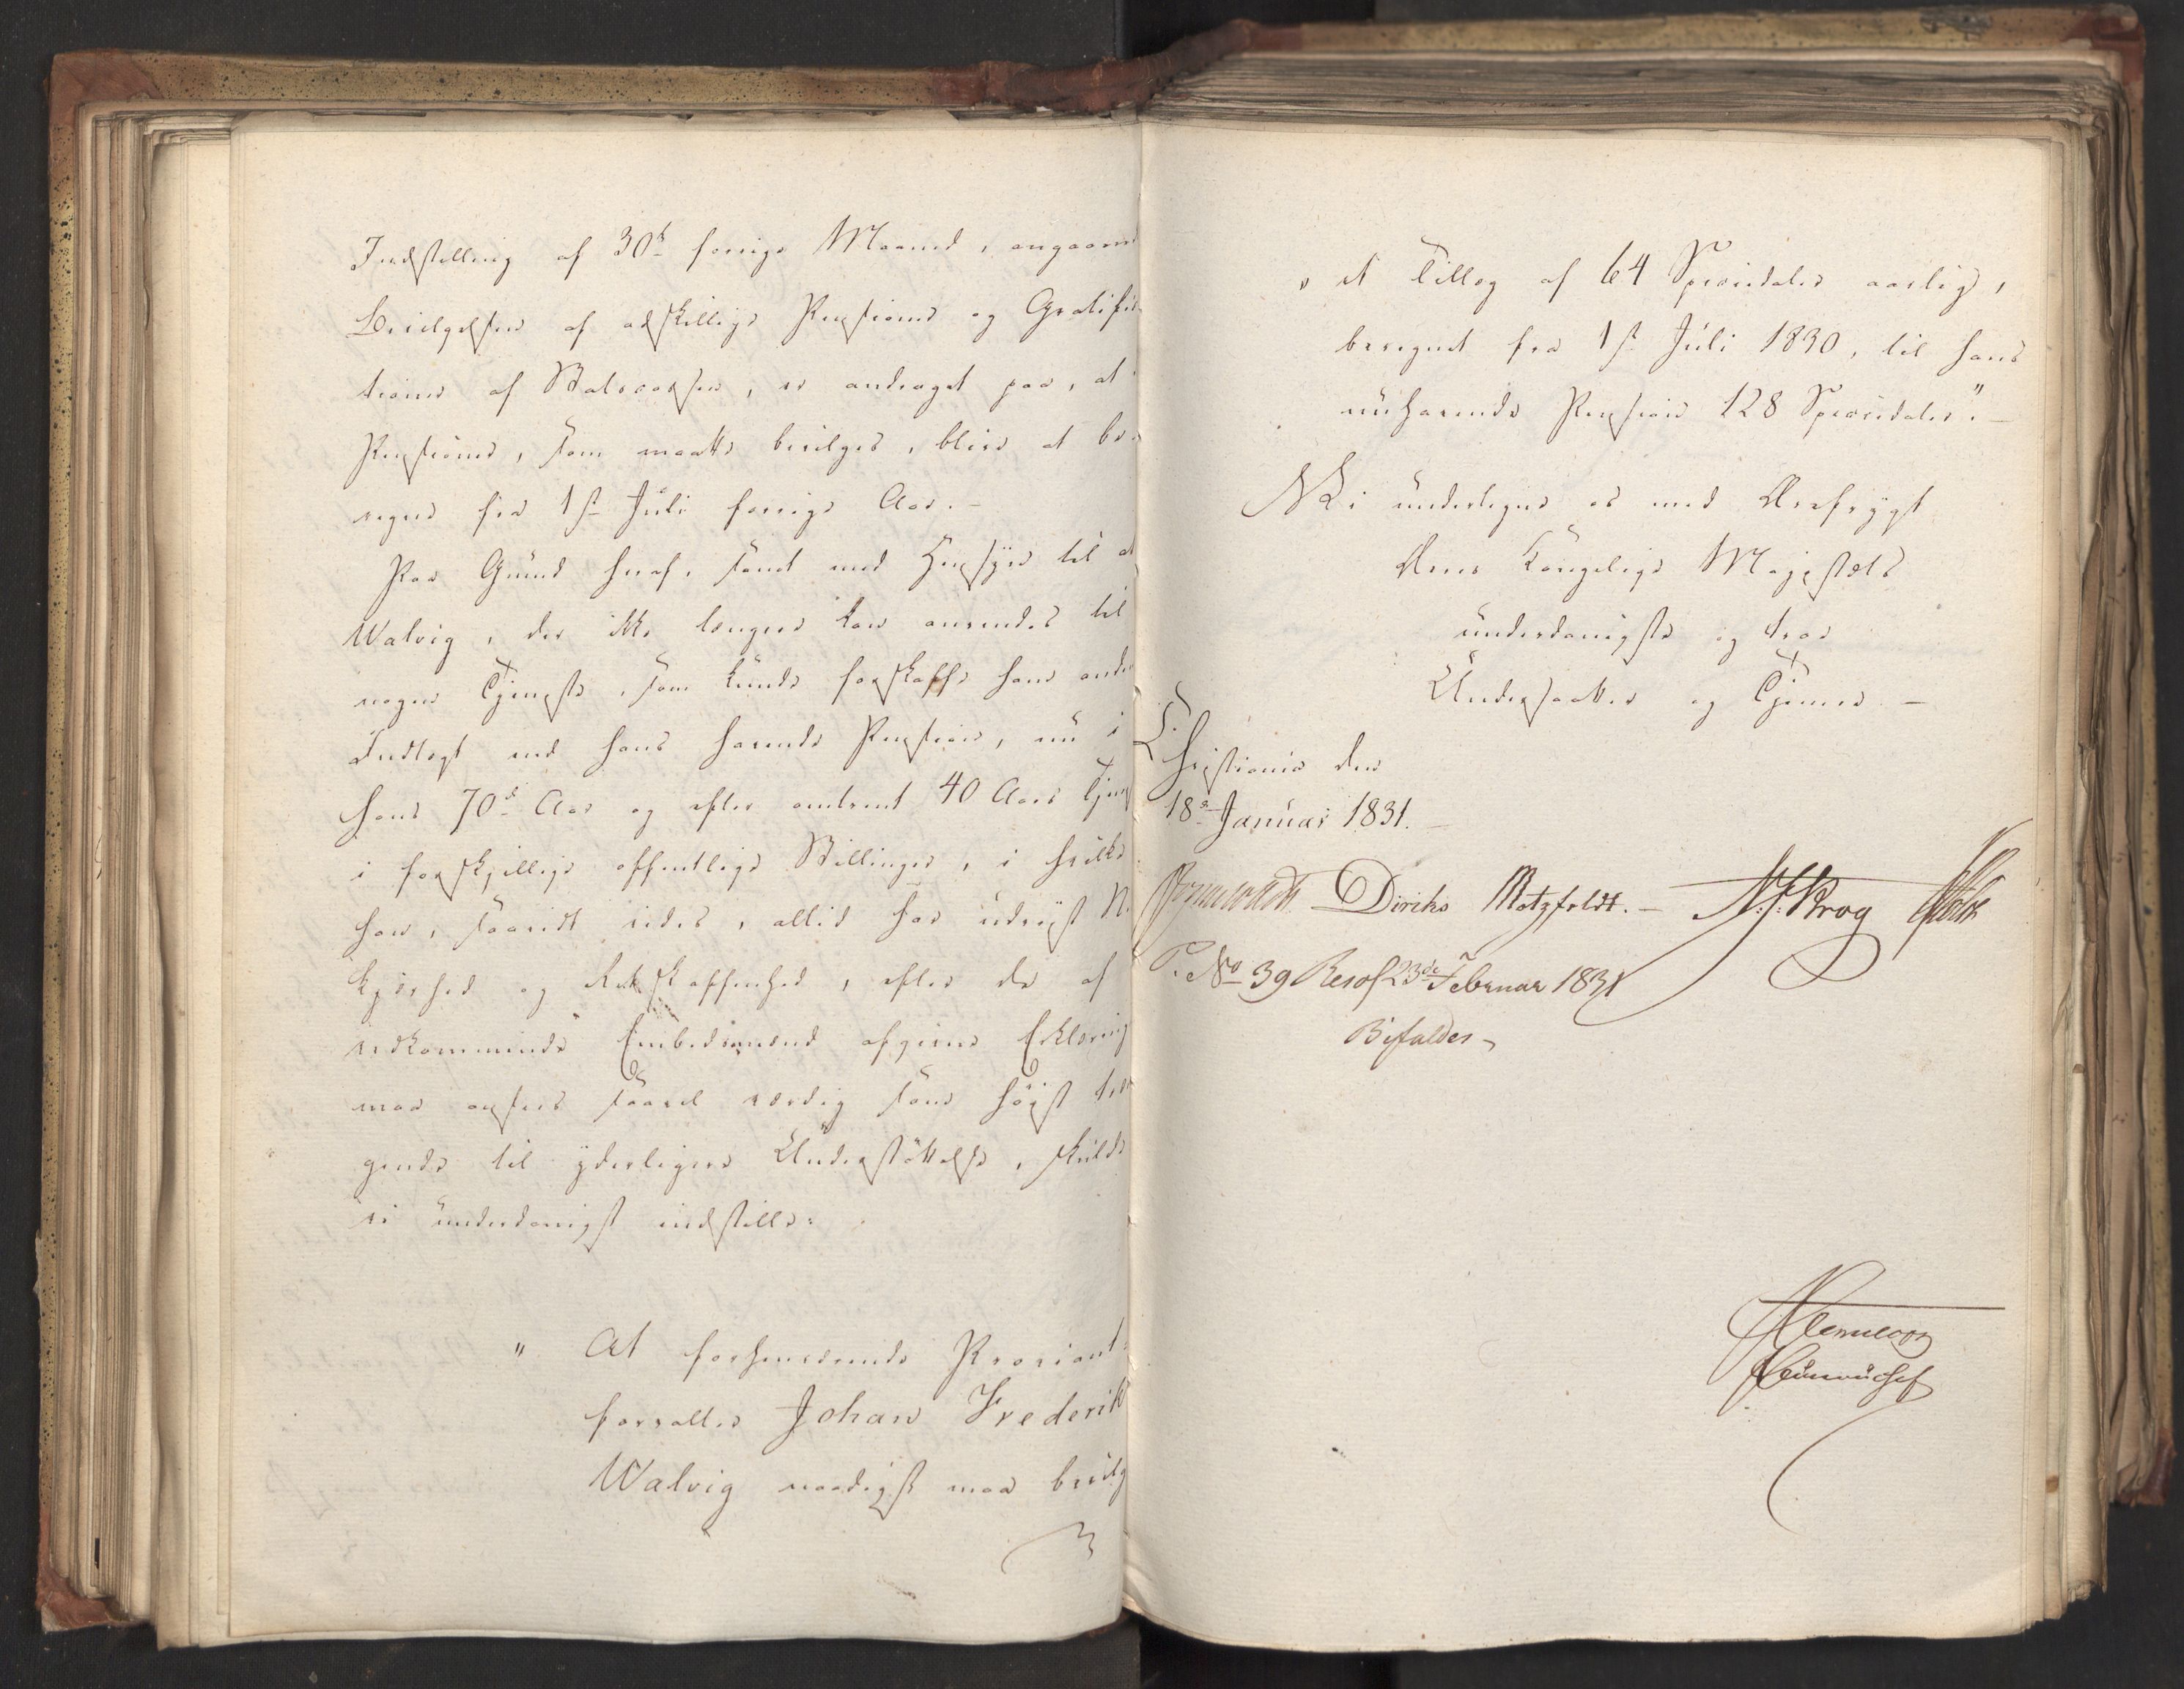 Indstilling af 30te forrige Maaned, angaaend
Bevilgelsen af adskillige Pensioner og Gratifica-
tioner af Statscassen, er andraget paa, at
Pensioner, som maatte bevilges, bliver at be-
regne fra 1ste Juli forrige Aar. -
Paa Grund heraf, samt med Hensyn til at
Walvig, der ikke længere kan anvendes til
nogen Tjeneste, som kunde forskaffe ham anden
Indtægt end hans havende Pension, nu i
hans 70de Aar og efter omtrent 40 Aars Tjen
i forskjellige offentlige Stillinger, i hvilke
han, saavidt vides, altid har udviist N
kjærhed og Retskaffenhed, efter de af
vedkommende Embedsmænd afgivne Erklæring
maa ansees saavel værdig som høist træn
gende til yderligere Understøttelse, skulde
vi underdanigst indstille:
" At forhenværende Proviant-
forvalter Johan Frederik
Walvig naadigst maa bevilg
" et Tillæg af 64 Speciedaler aarlig,
beregnet fra 1ste Juli 1830, til hans
nuhavende Pension 128 Speciedaler". -
Vi undertegne os med Ærefrygt
Deres Kongelige Majestæts
underdanigste og troe
Undersaatter og Tjenere. -
Christiania den
18de Januar 1831. -
Diriks Motzfeldt. - N. J. Krog Holst
P. No 39 Resol 23de Februar 1831
Bifaldes -